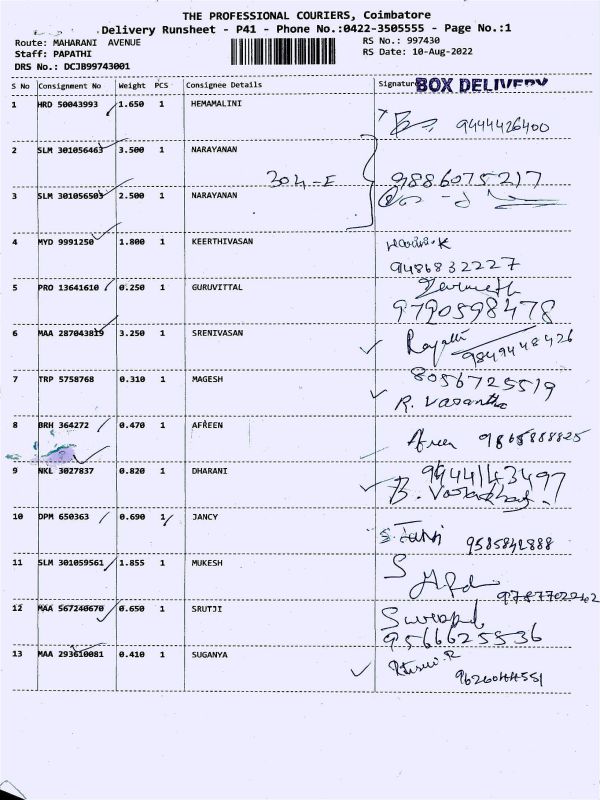 THE PROFESSIONAL COURIERS, Coimbatore
Delivery Runsheet - P41 - Phone No.:0422-3505555 - Page No.:1
Route: MAHARANI AVENUE
RS No.: 997430
Staff: PAPATHI
RS Date: 10-Aug-2022
DRS No.: DCJB99743001
S No Consignment No Weight PCS Consignee Details Signature BOX DELIVERY
1 HRD 50043993 1.650 1 HEMAMALINI
9444426400
2 SLM 301056463 3.500 1 NARAYANAN
304-E 9886075217
3 SLM 301056503 2.500 1 NARAYANAN
4 MYD 9991250 1.800 1 KEERTHIVASAN
9486832227
5 PRO 13641610 0.250 1 GURUVITTAL
9790598478
6 MAA 287043819 3.250 1 SRENIVASAN
9849448426
7 TRP 5758768 0.310 1 MAGESH 8056725519
R. Vasantha
8 BRH 364272 0.470 1 AFREEN
Afreen 9865888825
9 NKL 3027837 0.820 1 DHARANI 9944143497
10 DPM 650363 0.690 1 JANCY
9585842888
11 SLM 301059561 1.855 1 MUKESH
12 MAA 567240670 0.650 1 SRUTJI
9566625536
13 MAA 293610081 0.410 1 SUGANYA
9626044551